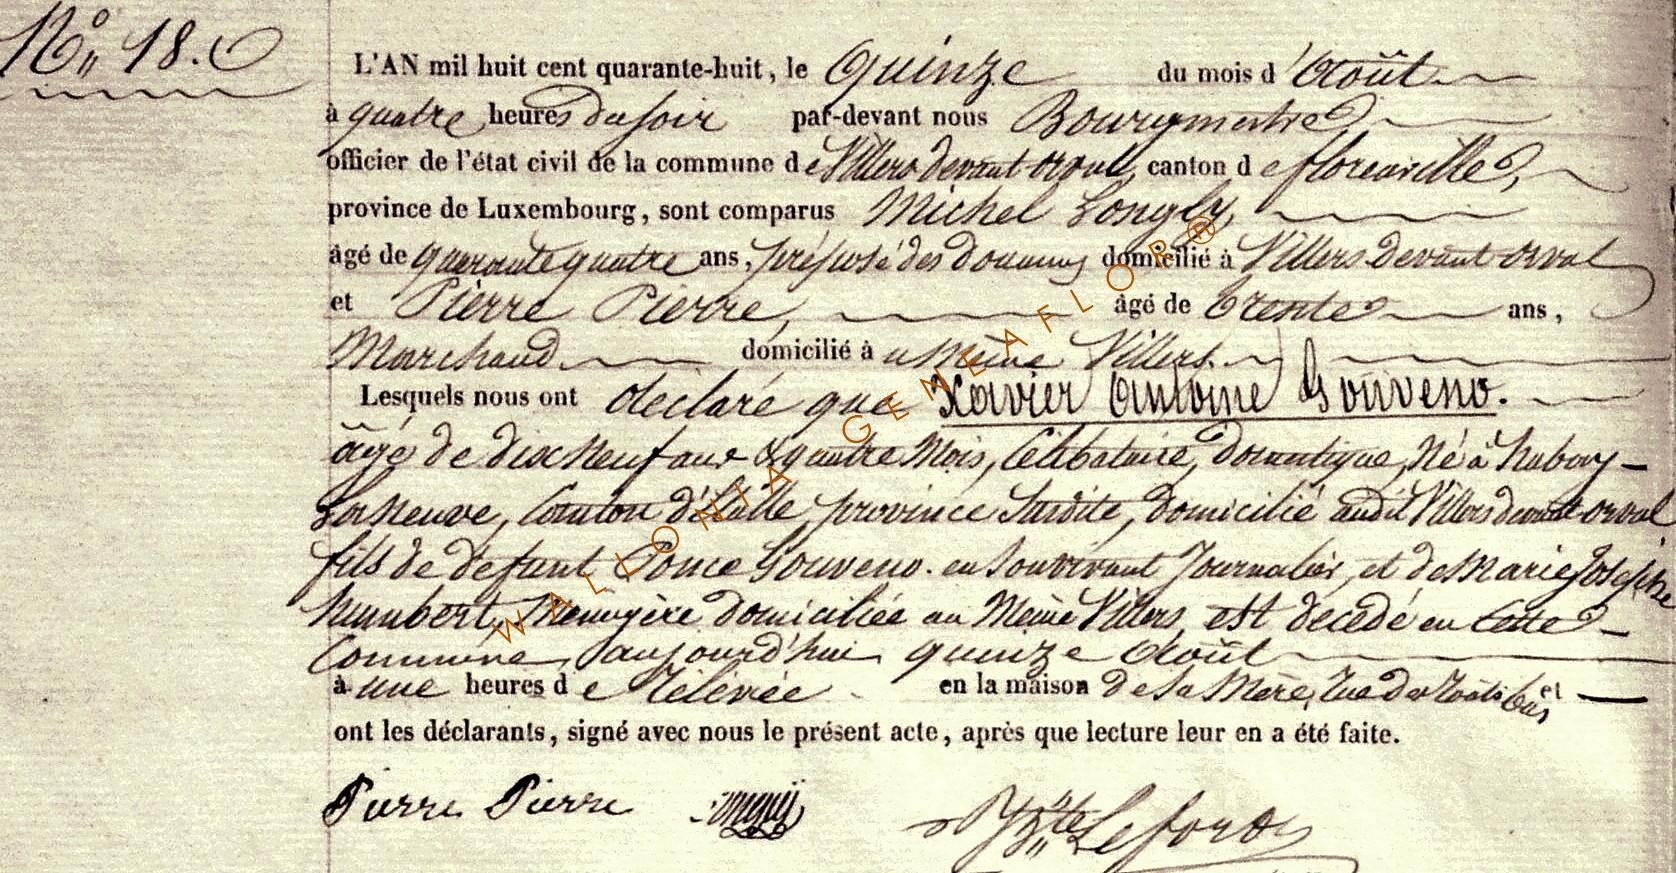 N° 18.
L'AN mil huit cent quarante-huit, le Quinze du mois d'Août
à quatre heures du soir par-devant nous Bourgmestre
officier de l'état civil de la commune de Villers devant orval, canton de florenville,
province de Luxembourg, sont comparus Michel Longly,
âgé de quarante quatre ans, préposé des douanes domicilié à Villers devant orval
et Pierre Pierre, âgé de trente ans,
Marchand domicilié à u Même Villers.
Lesquels nous ont déclaré que Xavier Antoine Gouveno.
âgé de dix neuf ans & quatre Mois, Célibataire, domestique, Né à
La Neuve, Canton d'Etalle province Susdite, domicilié audit Villers devant orval
fils de défunt Gouveno. en Son vivant Journalier, et de Marie Josephe
humbert, Menagère domiciliée au Même Villers, est décédé en Cette
Commune, aujourd'hui quinze Août
à une heures de Rélévée en la maison de Sa Mère, Rue et
ont les déclarants, signé avec nous le présent acte, après que lecture leur en a été faite.
Pierre Pierre Lefort
WALLONIA GENEAFLOR®